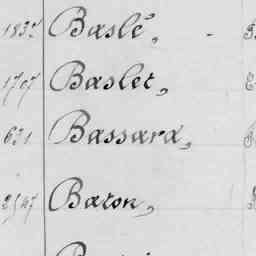 1832 Baslé,
1707 Baslet,
631 Bassard,
2547 Baton,